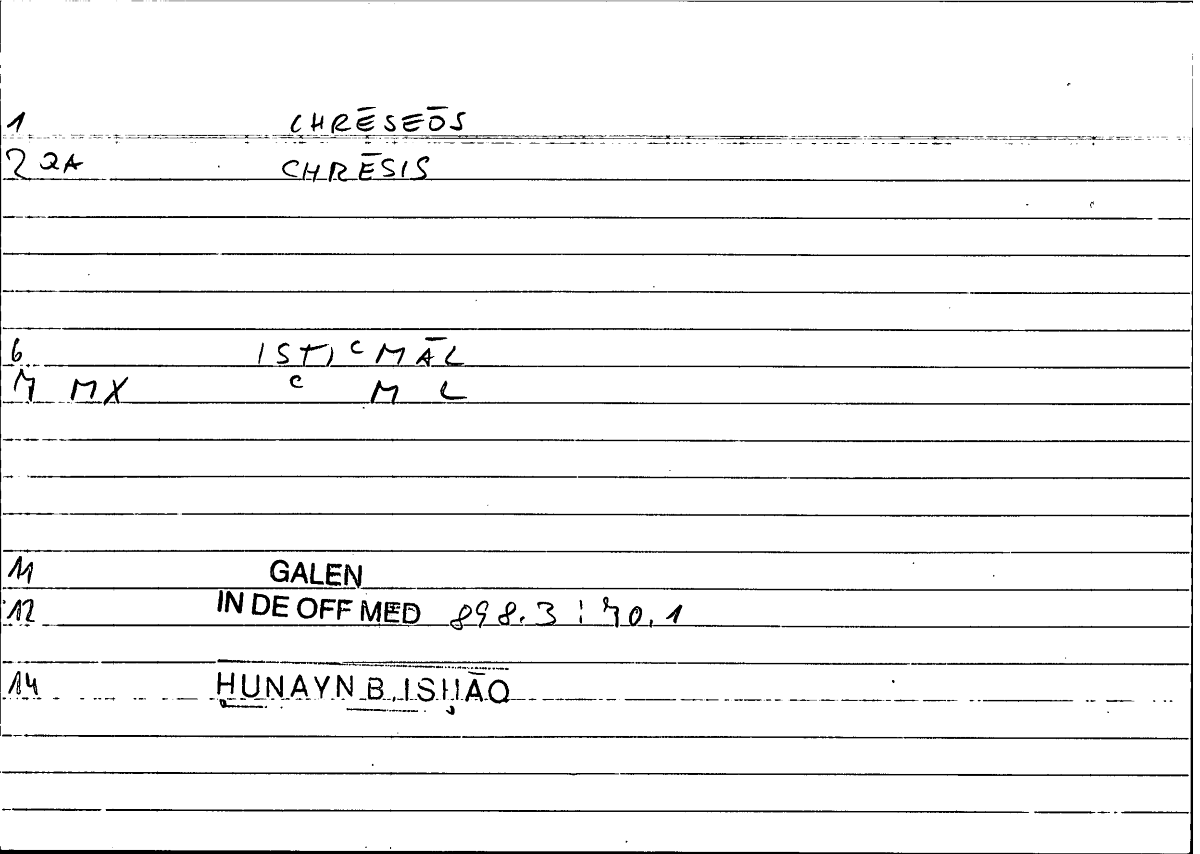 1 CHRĒSEŌS
2 QA CHRĒSIS
6 ISTIᶜMĀL
7 MX ᶜ M L
11 GALEN
12 IN DE OFF MED 898.3 : 70.1
14 ḤUNAYN B. ISḤĀQ